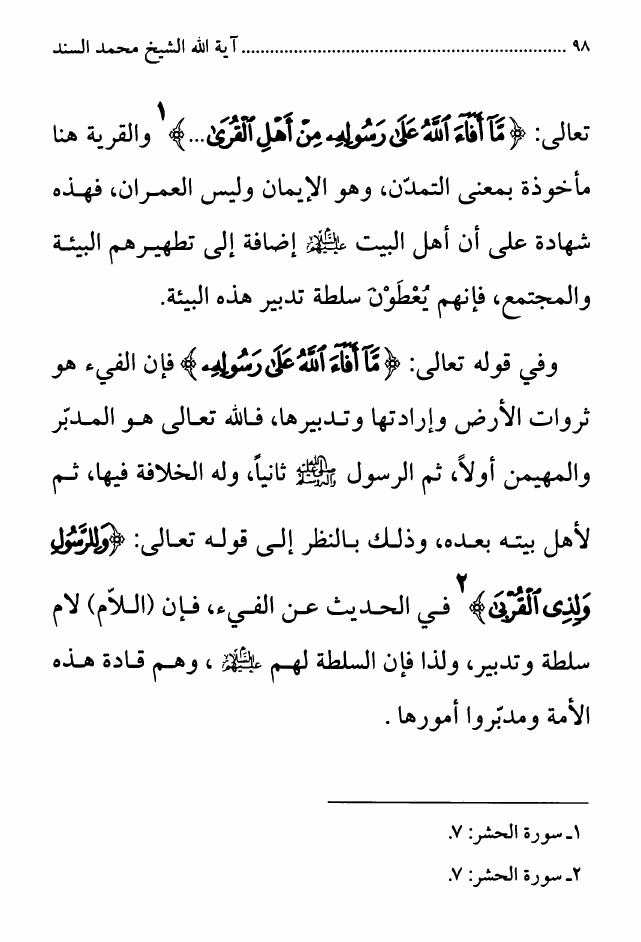 ٩٨ .................................................................... آية الله الشيخ محمد السند
تعالى: ﴿مَّآ أَفَآءَ ٱللَّهُ عَلَىٰ رَسُولِهِۦ مِنْ أَهْلِ ٱلْقُرَىٰ...﴾١ والقرية هنا
مأخوذة بمعنى التمدّن، وهو الإيمان وليس العمـران، فهـذه
شهادة على أن أهل البيت عليهم السلام إضافة إلى تطهيـرهم البيئـة
والمجتمع، فإنهم يُعْطَوْنَ سلطة تدبير هذه البيئة.
وفي قوله تعالى: ﴿مَّآ أَفَآءَ ٱللَّهُ عَلَىٰ رَسُولِهِۦ﴾ فإن الفيء هو
ثروات الأرض وإرادتها وتـدبيرها، فـالله تعـالى هـو المـدبّر
والمهيمن أولاً، ثم الرسول صلى الله عليه وآله وسلم ثانياً، وله الخلافة فيها، ثـم
لأهل بيتـه بعـده، وذلـك بـالنظر إلـى قولـه تعـالى: ﴿وَلِلرَّسُولِ
وَلِذِى ٱلْقُرْبَىٰ﴾٢ فـي الحـديث عـن الفـيء، فـإن (الـلاّم) لام
سلطة وتدبير، ولذا فإن السلطة لهـم عليهم السلام ، وهـم قـادة هـذه
الأمة ومدبّروا أمورها .
١ـ سورة الحشر: ٧.
٢ـ سورة الحشر: ٧.